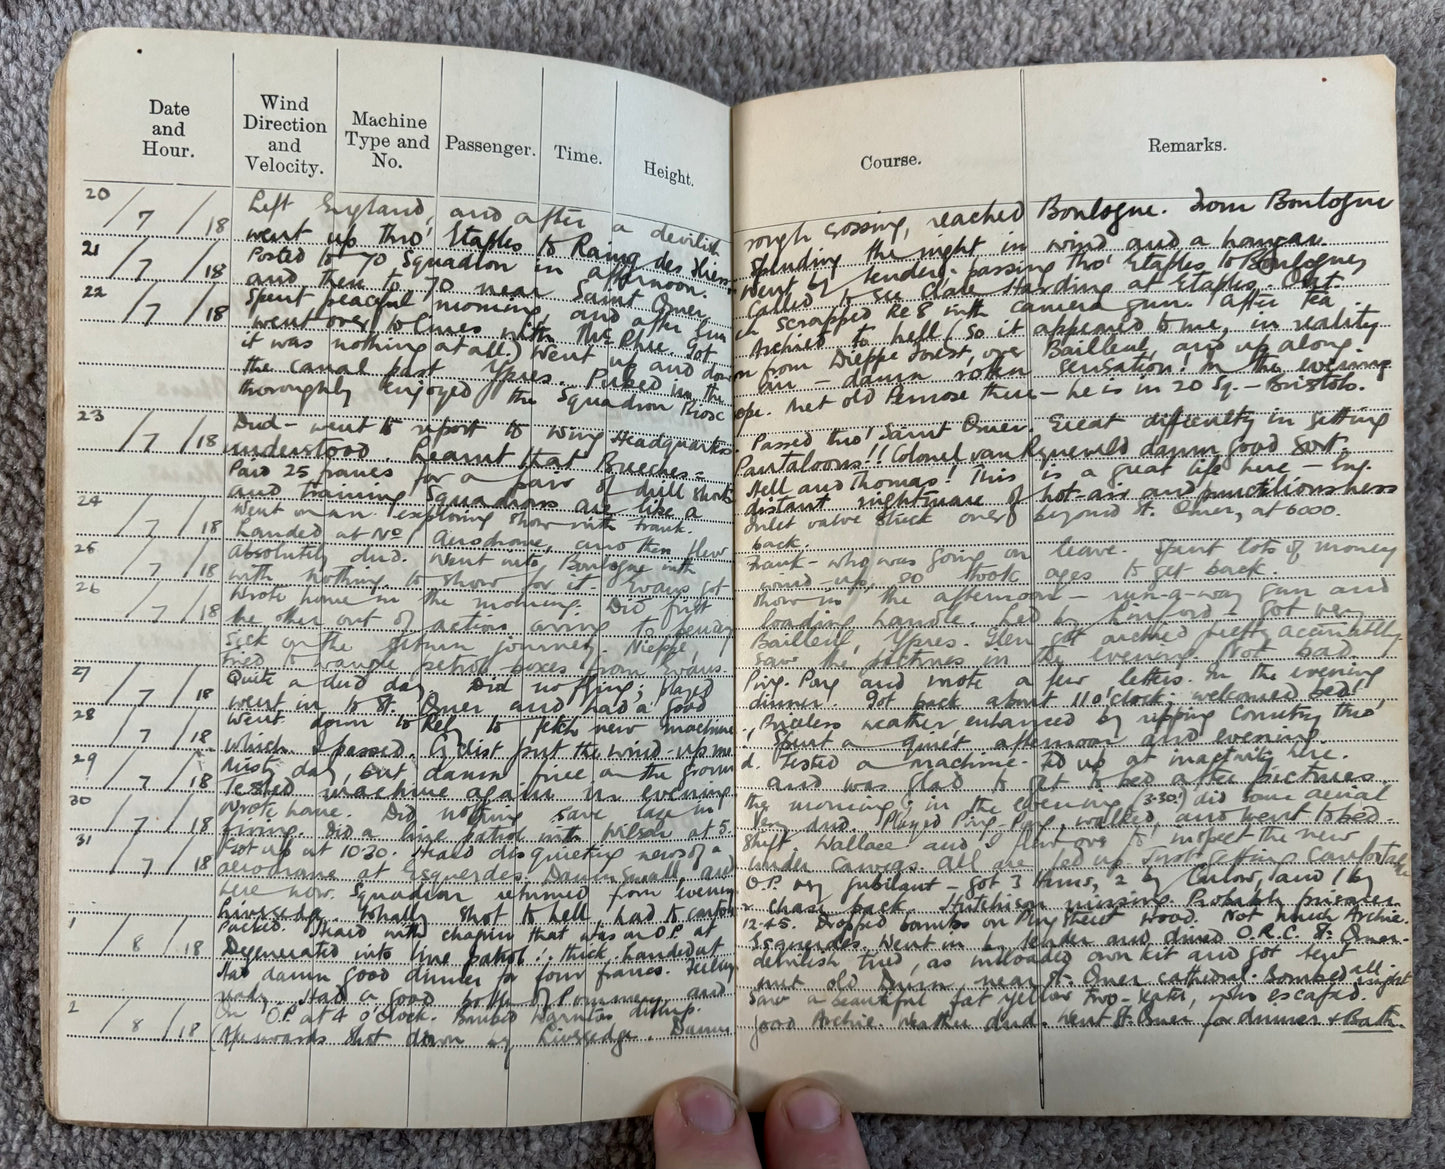 Date and Hour. Wind Direction and Velocity. Machine Type and No. Passenger. Time. Height. Course. Remarks.
20/7/18 Left England, and after a devilish rough crossing, reached Boulogne. From Boulogne
went up thro' Etaples to Rang des spending the night in wind and a hangar.
21/7/18 Posted to 70 Squadron in afternoon. Went by tender passing thro' Etaples to Boulogne
and then to 70 near Saint Omer. Called to see Clare Harding at Etaples.
22/7/18 Spent peaceful morning, and after scrapped RE8 with camera gun. After tea
went over to lines with McPhee Got Archied to hell (So it appeared to me, in reality
it was nothing at all.) Went up and down from Dieppe Forest, over Bailleul, and up along
the canal past Ypres. in the air – damn rotten sensation! In the evening
thoroughly enjoyed the Squadron Met old Penrose there – he is in 20 Sq. – Bristols.
23/7/18 Dud – went to report to Wing Headquarters. Passed thro' Saint Omer. Great difficulty in getting
understood. Learnt that Breeches = Pantaloons!! Colonel van Ryneveld damn good sort.
Paid 25 francs for a pair of drill shorts Hell and Thomas! This is a great life here – Eng.
and training Squadrons are like a distant nightmare of hot-air and punctiliousness
24/7/18 Went on an exploring show with Frank. Inlet valve stuck over beyond St. Omer, at 6000.
Landed at No 1 Aerodrome, and then flew back.
25/7/18 Absolutely dud. Went into Boulogne with Frank – who was going on leave. Spent lots of money
with nothing to show for it. Evans got wound-up, so took ages to get back.
26/7/18 Wrote home in the morning. Did first show in the afternoon – run-a-way gun and
the other out of action owing to loading handle. Led by – Got very
sick on the return journey. Nieppe, Bailleul, Ypres. Glen got archied pretty accurately
tried to wangle petrol boxes from Evans. Saw the pictures in the evening. Not bad
27/7/18 Quite a dud day. Did no flying; played Ping-Pong and wrote a few letters. In the evening
went in to St. Omer and had a good dinner. Got back about 11 o'clock. welcomed bed!
28/7/18 Went down to Rely to fetch new machine, Priceless weather enhanced by ripping country thro'
which I passed. Cyclist put the wind-up me. Spent a quiet afternoon and evening.
29/7/18 Misty day, but damn fine on the ground. Tested a machine. Fed up at inactivity here.
Tested machine again in evening and was glad to get to bed after pictures
30/7/18 Wrote home. Did nothing save laze in the morning; in the evening (3-30) did some aerial
firing. Did a line patrol with Wilson at 5. Very dud. Played Ping-Pong, walked, and went to bed.
31/7/18 Got up at 10-30. Heard disquieting news of a shift. Wallace and I flew over to inspect the new
aerodrome at Esquerdes. Damn small, and under canvas. All are fed up. Just getting comfortable
here now. Squadron returned from evening O.P. very jubilant – got 3 Huns, 2 by Carlow, and 1 by
Liversedge. Whally shot to hell, had to chase back. Hutchison missing. Probably prisoner.
1/8/18 Packed. Heard with chagrin that was on O.P. at 12-45. Dropped bombs on Ploegsteert wood. Not much Archie.
Degenerated into line patrol! thick, landed at Esquerdes. Went in by tender and dined O.R.C. St. Omer.
Had damn good dinner for four francs. Feeling devilish tired, as unloaded own kit and got tent
ready. Had a good bottle of Pommery, and met old Dunn, near St. Omer cathedral. Bombed all night
2/8/18 On O.P. at 4 o'clock. Bombed Warneton dump. Saw a beautiful fat yellow two-seater, who escaped.
(Afterwards shot down by Liversedge. Damn good Archie. Weather dud. Went St. Omer for dinner & Bath.